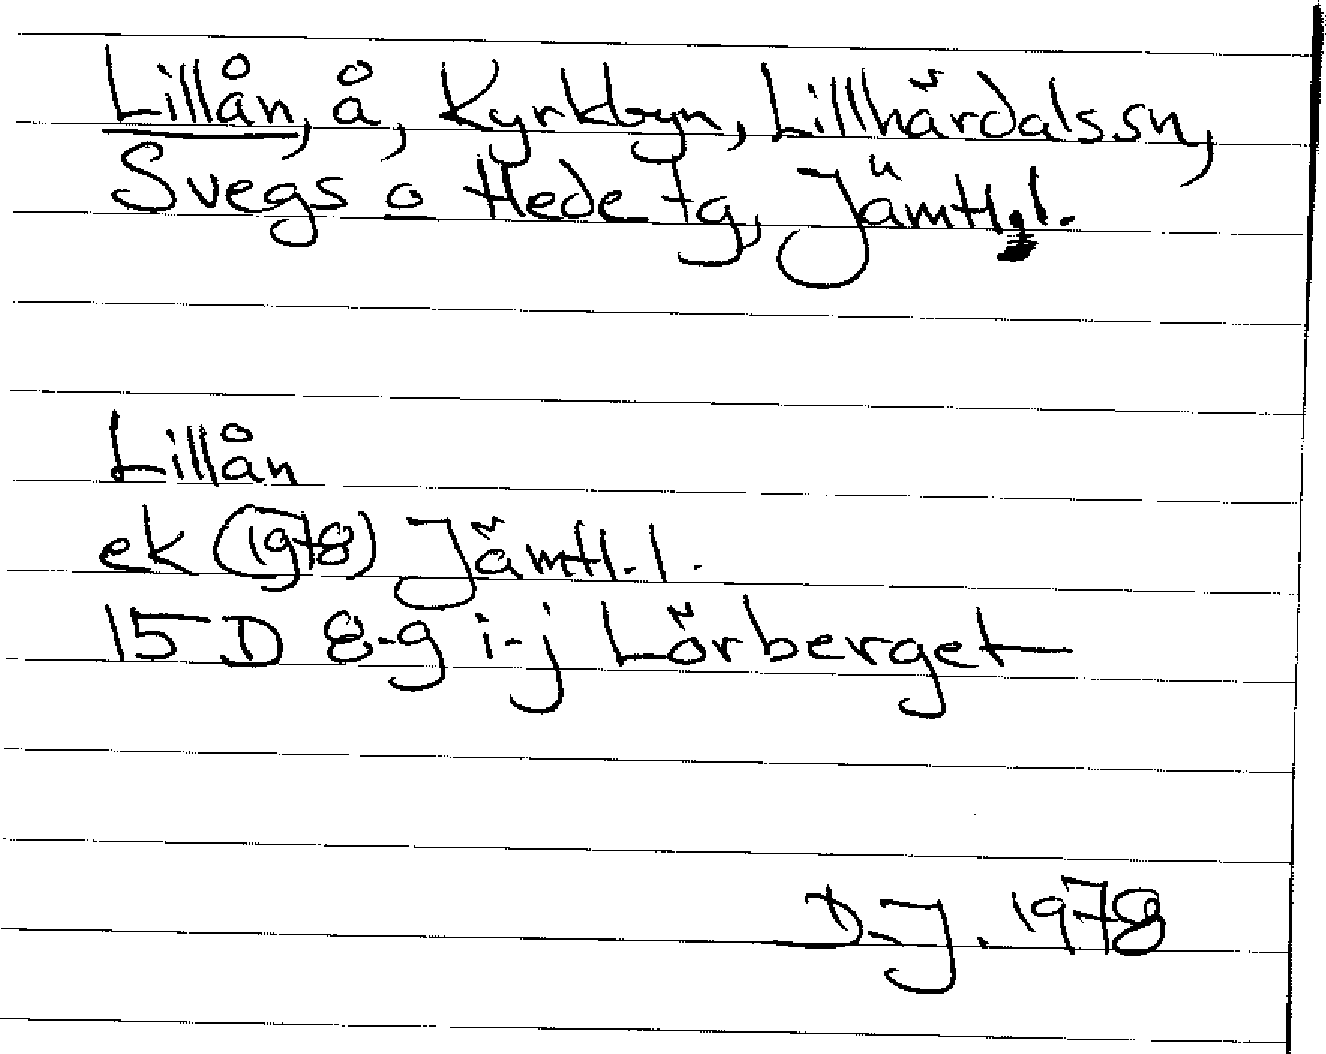 Lillån, å, Kyrkbyn, Lillhärdals sn,
Svegs o Hede tg, Jämtl. l.
Lillån
ek (1978) Jämtl. l.
15 D 8-9 i-j Lörberget
D-J. 1978